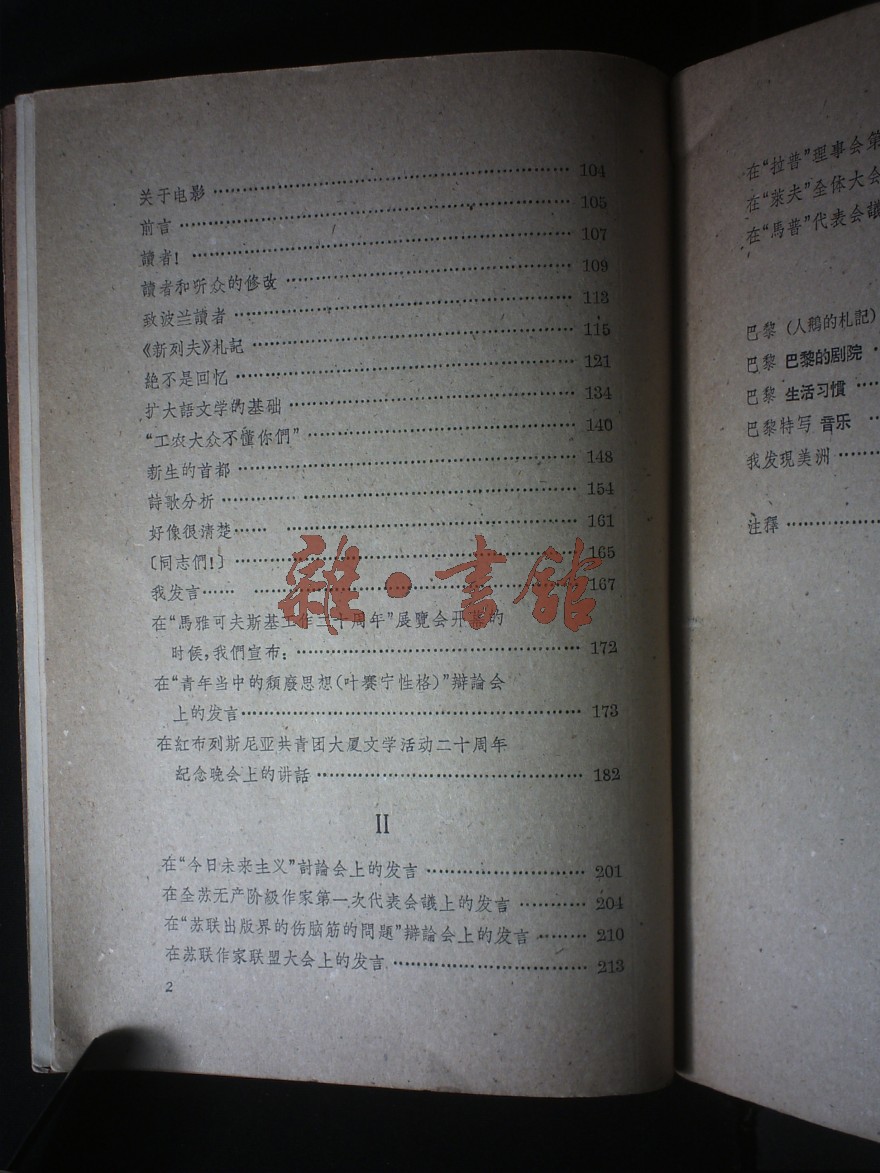 关于电影 104
前言 105
讀者! 107
讀者和听众的修改 109
致波兰讀者 113
《新列夫》札記 115
絕不是回忆 121
扩大語文学的基础 134
“工农大众不懂你們” 140
新生的首都 148
詩歌分析 154
好像很清楚…… 161
〔同志們!〕 165
我发言…… 167
在“馬雅可夫斯基工作二十周年”展覽会开幕的
时候,我們宣布: 172
在“青年当中的頹廢思想(叶賽宁性格)”辯論会
上的发言 173
在紅布列斯尼亚共青团大厦文学活动二十周年
紀念晚会上的讲話 182
II
在“今日未来主义”討論会上的发言 201
在全苏无产阶級作家第一次代表会議上的发言 204
在“苏联出版界的伤脑筋的問題”辯論会上的发言 210
在苏联作家联盟大会上的发言 213
2
在“拉普”理事会第
在“萊夫”全体大会
在“馬普”代表会議
巴黎(人鵝的札記)
巴黎 巴黎的剧院
巴黎 生活习慣
巴黎特写 音乐
我发現美洲
注釋
雜·書館